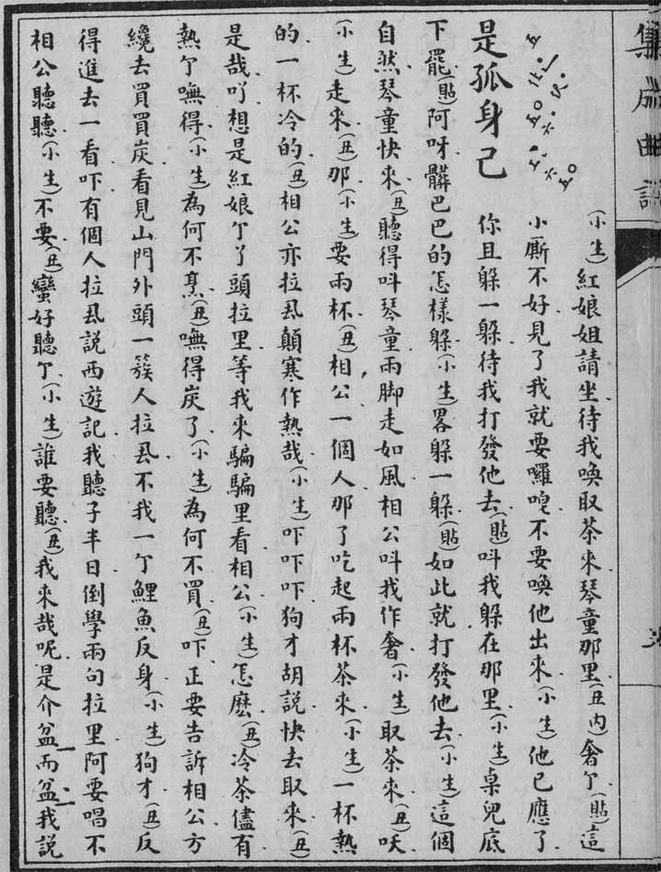 集成曲譜
是孤身己
(小生)紅娘姐請坐待我喚取茶來琴童那里(丑內)奢个(貼)這
小廝不好見了我就要囉唣不要喚他出來(小生)他已應了
你且躲一躲待我打發他去(貼)呌我躲在那里(小生)桌兒底
下罷(貼)阿呀髒巴巴的怎樣躲(小生)畧躲一躲(貼)如此就打發他去(小生)這個
自然琴童快來(丑)聽得呌琴童兩脚走如風相公呌我作奢(小生)取茶來(丑)吷
(小生)走來(丑)那(小生)要兩杯(丑)相公一個人那了吃起兩杯茶來(小生)一杯熱
的一杯冷的(丑)相公亦拉厾顛寒作熱哉(小生)吓吓吓狗才胡說快去取來(丑)
是哉吖想是紅娘个丫頭拉里等我來騙騙里看相公(小生)怎麽(丑)冷茶儘有
熱个嘸得(小生)為何不烹(丑)嘸得炭了(小生)為何不買(丑)吓正要告訴相公方
纔去買買炭看見山門外頭一簇人拉厾不我一个鯉魚反身(小生)狗才(丑)反
得進去一看吓有個人拉厾說西遊記我聽子半日倒學兩句拉里阿要唱不
相公聽聽(小生)不要(丑)蠻好聽个(小生)誰要聽(丑)我來哉呢是介盆而盆我說